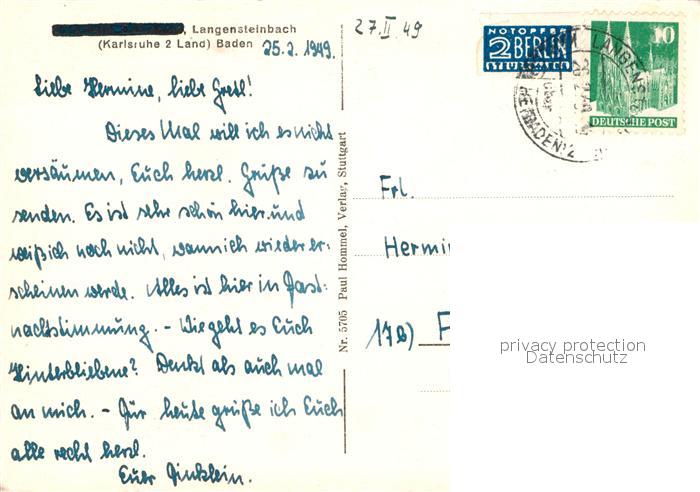 , Langensteinbach
(Karlsruhe 2 Land) Baden
25.2.1949.
Liebe Hermine, liebe Gretl!
Dieses Mal will ich es nicht
versäumen, Euch herzl. Grüße zu
senden. Es ist sehr schön hier und
weiß ich noch nicht, wann ich wieder er-
scheinen werde. Alles ist hier in Fast-
nachtstimmung. - Wie geht es Euch
Hinterbliebene? Denkt als auch mal
an mich. - Für heute grüße ich Euch
alle recht herzl.
Euer
Nr. 5705 Paul Hommel, Verlag, Stuttgart
27.II 49
NOTOPFER
2 BERLIN
STEUERMARKE
10
DEUTSCHE POST
LANGENST
über
BADEN) 2
Frl.
Hermi
17b) F
privacy protection
Datenschutz